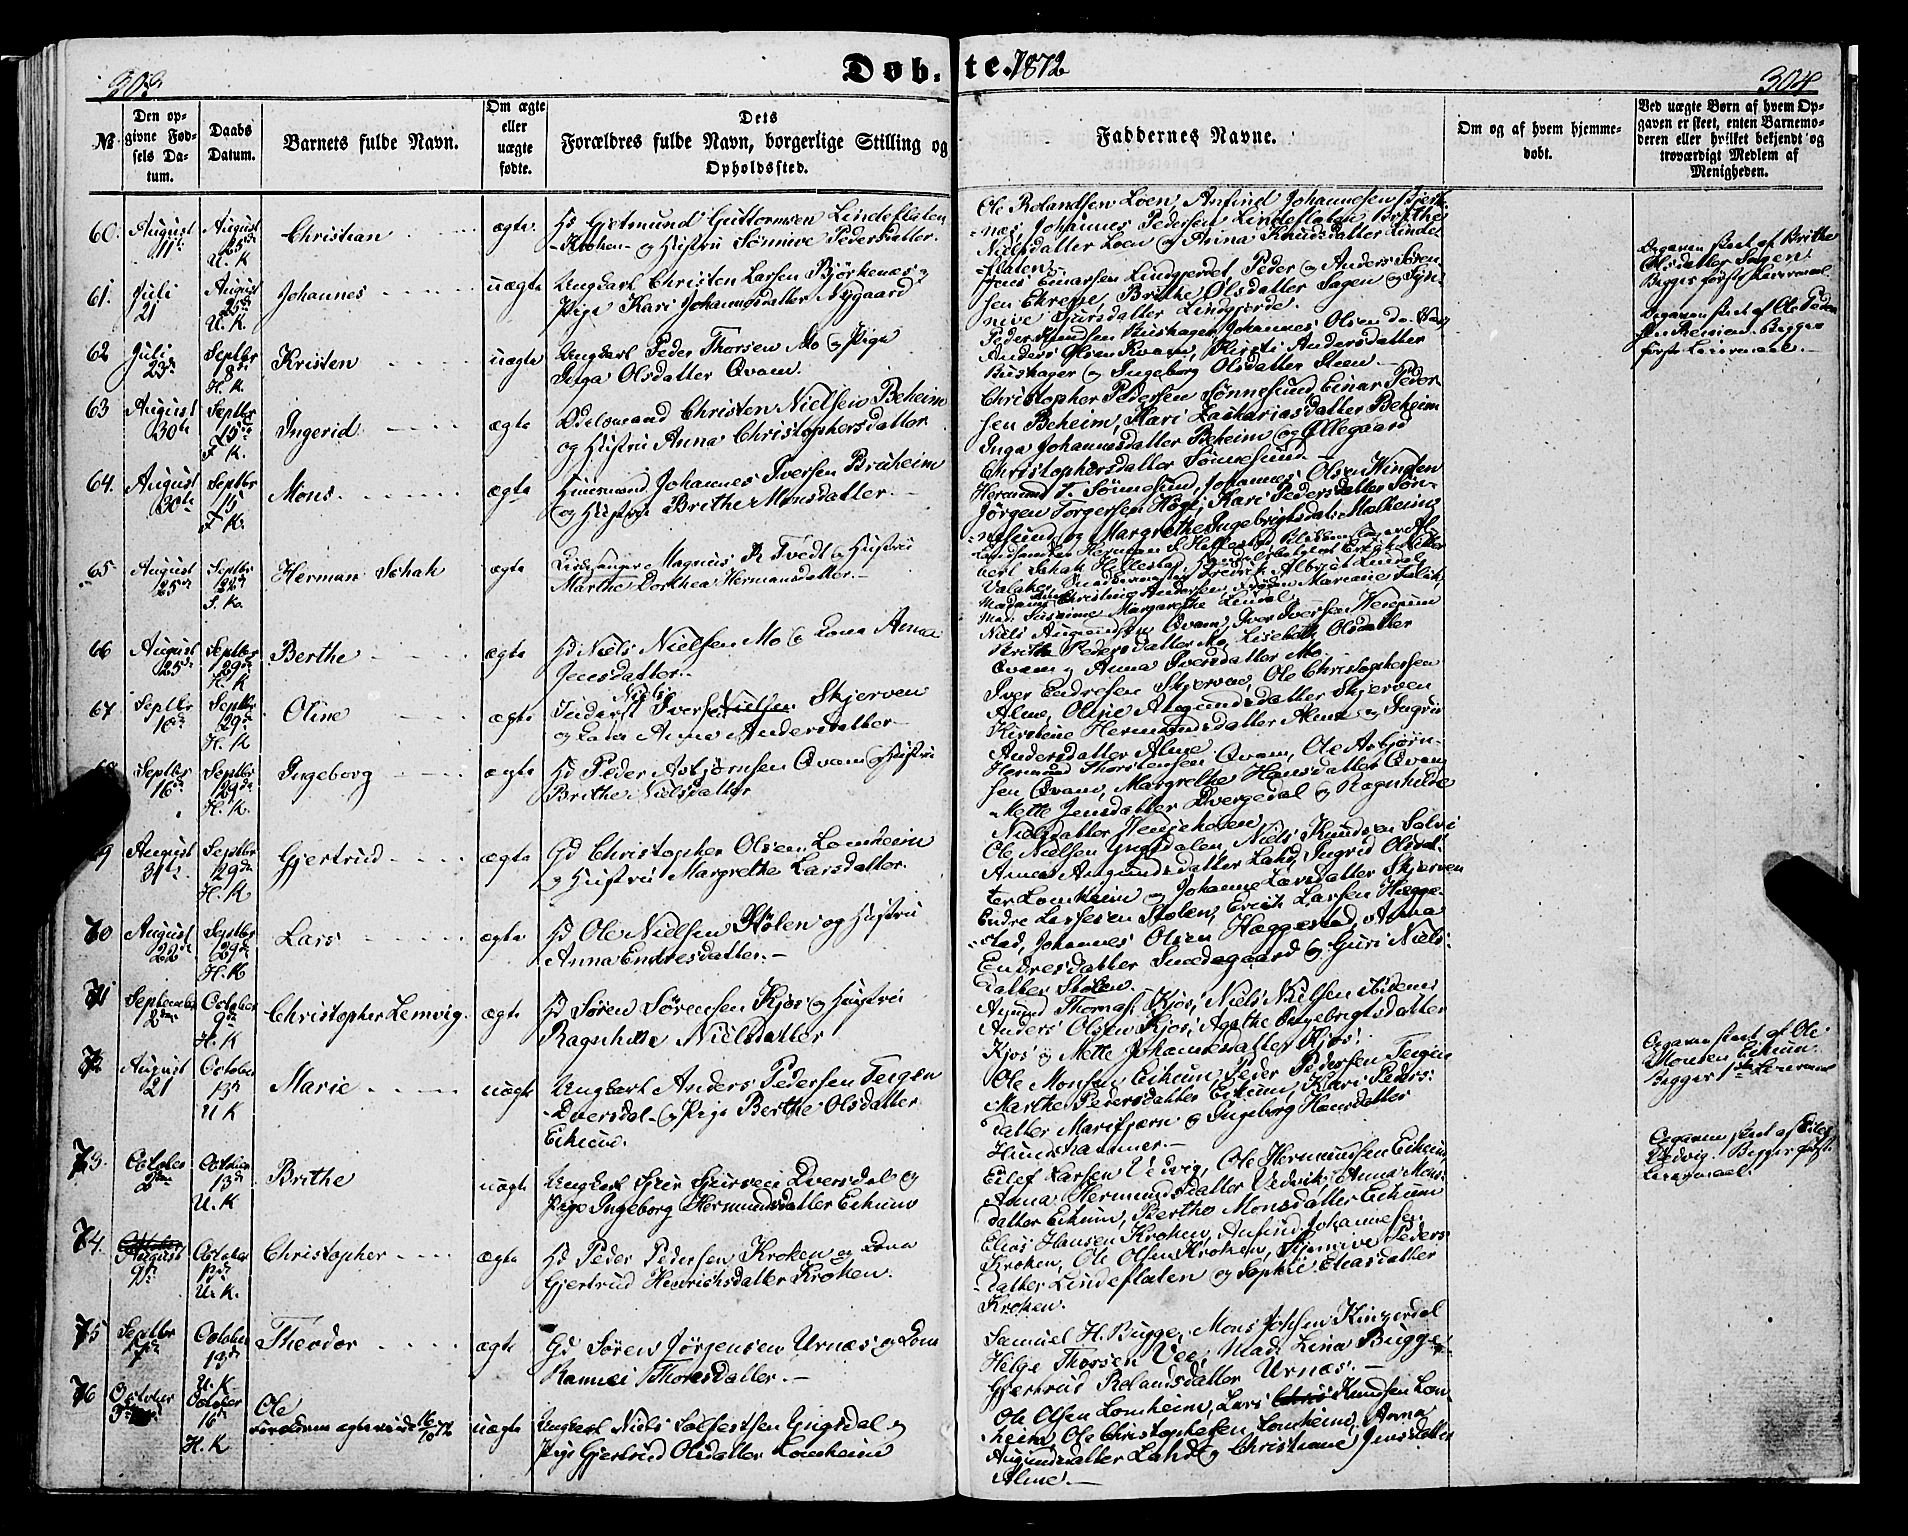 303
Døb-te.
1872
304
№
Den op-
givne Fød-
sels Da-
tum.
Daabs
Datum.
Barnets fulde Navn.
Om ægte
eller
uægte
fødte.
Dets
Forældres fulde Navn, borgerlige Stilling og
Opholdssted.
Faddernes Navne.
Om og af hvem hjemme-
døbt.
Ved uægte Børn af hvem Op-
gaven er skeet, enten Barnemo-
deren eller hvilket bekjendt og
troværdigt Medlem af
Menigheden.
60.
August
11te
August
25de
U. K
Christian
ægte
Gjermund Guttormsen Lindeflaten
Kroken og Hustru Sønnive Pedersdatter.
Ole Rolandsen Loen, Anfind Johannesen Bjerk-
næs, Johannes Pedersen Lindeflaten, Brithe
Nielsdatter Loen og Anna Knudsdatter Linde-
flaten
61.
Juli
21
August
25de
U. K.
Johannes
uægte
Ungkarl Christen Larsen Bjørkenæs og
Pige Kari Johannesdatter Nygaard
Jens Einarsen Lindgjerdet, Peder og Anders Søren-
sen Ekrene, Brithe Olsdatter Sagen og Syn-
nive Sjursdatter Lindgjerde.
Opgaven skeet af Brithe
Olsdatter Sagen
Begges første Leiermaal
62
Juli
23de
Septbr
8de
H. K.
Kristen
uægte
Ungkarl Peder Thorsen Mo og Pige
Inga Olsdatter Qvam.
Anders Olsen Kvam, Kirsti Andersdatter
Rushager og Ingeborg Olsdatter Steen
Opgaven skeet af Ole Peder-
første Leiermaal.
63
August
30te
Septbr
15de
F. K.
Ingerid
ægte
Odelsmand Christen Nielsen Beheim
og Hustru Anna Christophersdatter
Christopher Pedersen Sønnesund, Einar Peder-
sen Beheim, Kari Zachariasdatter Beheim
Inga Johannesdatter Beheim og Øllegaard
Christophersdatter Sønnesund.
64.
August
30te
Septbr
15
F. K.
Mons
ægte
Huusmand Johannes Iversen Bruheim
og Hustru Brithe Monsdatter.
Hermund T. Sønnesund, Johannes Olsen Hingsen
Jørgen Torgersen Høge, Kari Pedersdatter Søn-
nesund og Margrethe Ingebrigtsdatr Molheim
65
August
25de
Septbr
22de
Herman Schak
ægte
Kirkesanger Magnus R Tvedt og Hustru
Marthe Dorthea Hermansdatter.
66
August
25de
Septbr
29de
H. K
Berthe
ægte
Niels Nielsen Mo og Kona Anna
Jensdatter.
Niels Augundsen Qvam, Iver Iversen Hereum
Brithe Pedersdatter Mo, Lisebeth Olsdatter
Qvam og Anna Iversdatter Mo.
67
Septbr
16de
Septbr
29de
H. K
Oline
ægte
Niels
Iversen Nielsen Skjerven
og Kona Anna Andersdatter
Iver Endresen Skjerven, Ole Christophersen
Alme, Oline Augundsdatter Skjerven
Kirstine Hermundsdatter Alme og Ingrid
Andersdatter Alme.
Septbr
16de
Septbr
29de
H. K.
Ingeborg
ægte
Peder Asbjørnsen Qvam og Hustru
Brithe Nielsdatter
Hermund Thorstensen Qvam, Ole Asbjørn-
sen Qvam, Margrethe Hansdatter Qvam
Mette Jensdatter Dvergedal og Ragnhilde
Nielsdatter
69
August
31te
Septbr
29de
H. K
Gjertrud
ægte
Christopher Olsen Lomheim
og Hustru Margrethe Larsdatter
Ole Nielsen Yngsdalen, Niels Knudsen Solvi
Anna Augundsdatter Land, Ingrid Olsdat-
ter Lomheim og Johanne Larsdatter Skjerven
70
August
22de
Septbr
29de
H. K
Lars
ægte
Ole Nielsen Stølen og Hustru
Anna Endresdatter.
Endre Larsen Stolen, Erich Larsen Hægge-
stad, Johannes Olsen Hæggestad, Anna
Endresdatter Snædegaard og Guri Niels-
datter Stolen.
71
September
2den
October
9de
H. K
Christopher Lemvig.
ægte
Søren Sørensen Kjos og Hustru
Ragnhilde Nielsdatter
Amund Thomas. Kjos, Niels Nielsen ibidem
Anders Olsen Kjos, Agathe Ingebrigtsdatter
Kjos og Mette Johannesdatter Kjos.
72
August
21
October
13de
U K
Marie
uægte
Ungkarl Anders Pedersen Teigen
Dversdal og Pige Berthe Olsdatter
Eikum.
Ole Monsen Eikum, Peder Pedersen Teigen
Marthe Pedersdatter Eikum, Kari Peders-
datter Marifjæren og Ingeborg Hansdatter
Hundshammer.
Opgaven skeet af Ole
Monsen Eikum.
Begges 1ste Leiermaal
73.
October
October
13de
U. K
Brithe
uægte
Ungkarl Sjur Sjursen Dversdal og
Pige Ingeborg Hermundsdatter Eikum
Eilef Larsen Vedvig, Ole Hermundsen Eikum,
Anna Hermundsdatter Vedvik, Anna Mons-
datter Eikum, Berthe Monsdatter Eikum
Opgaven skeet af Eilef
Vedvig. Begges første
Leiermaal.
74.
October
August
9de
October
13de
U. K.
Christopher
ægte
Peder Pedersen Kroken og Kona
Gjertrud Henrichsdatter Kroken.
Elias Hansen Kroken, Anfind Johannesen
Kroken, Ole Olsen Kroken, Synnive Peders-
datter Lindeflaten og Sophie Eliasdatter
Kroken.
75
Septbr
October
13de
U. K
Theodor
ægte
Søren Jørgensen Urnæs og Kona
Thorsdatter.
Samuel H. Bugge, Mons Johsen Kinserdal
Helge Thorsen Vee, Mad. Lina Bugge,
Gjertrud Rolandsdatter Urnæs.
76
October
3de
October
16de
H. K
Ole
uægte
Ungkarl Niels Solfestsen Yngsdal og
Pige Gjertrud Olsdatter Lomheim
Ole Olsen Lomheim, Lars Knudsen Lom-
heim, Ole Christophersen Lomheim, Anna
Augundsdatter Land og Christiane Jensdatter
Alme.